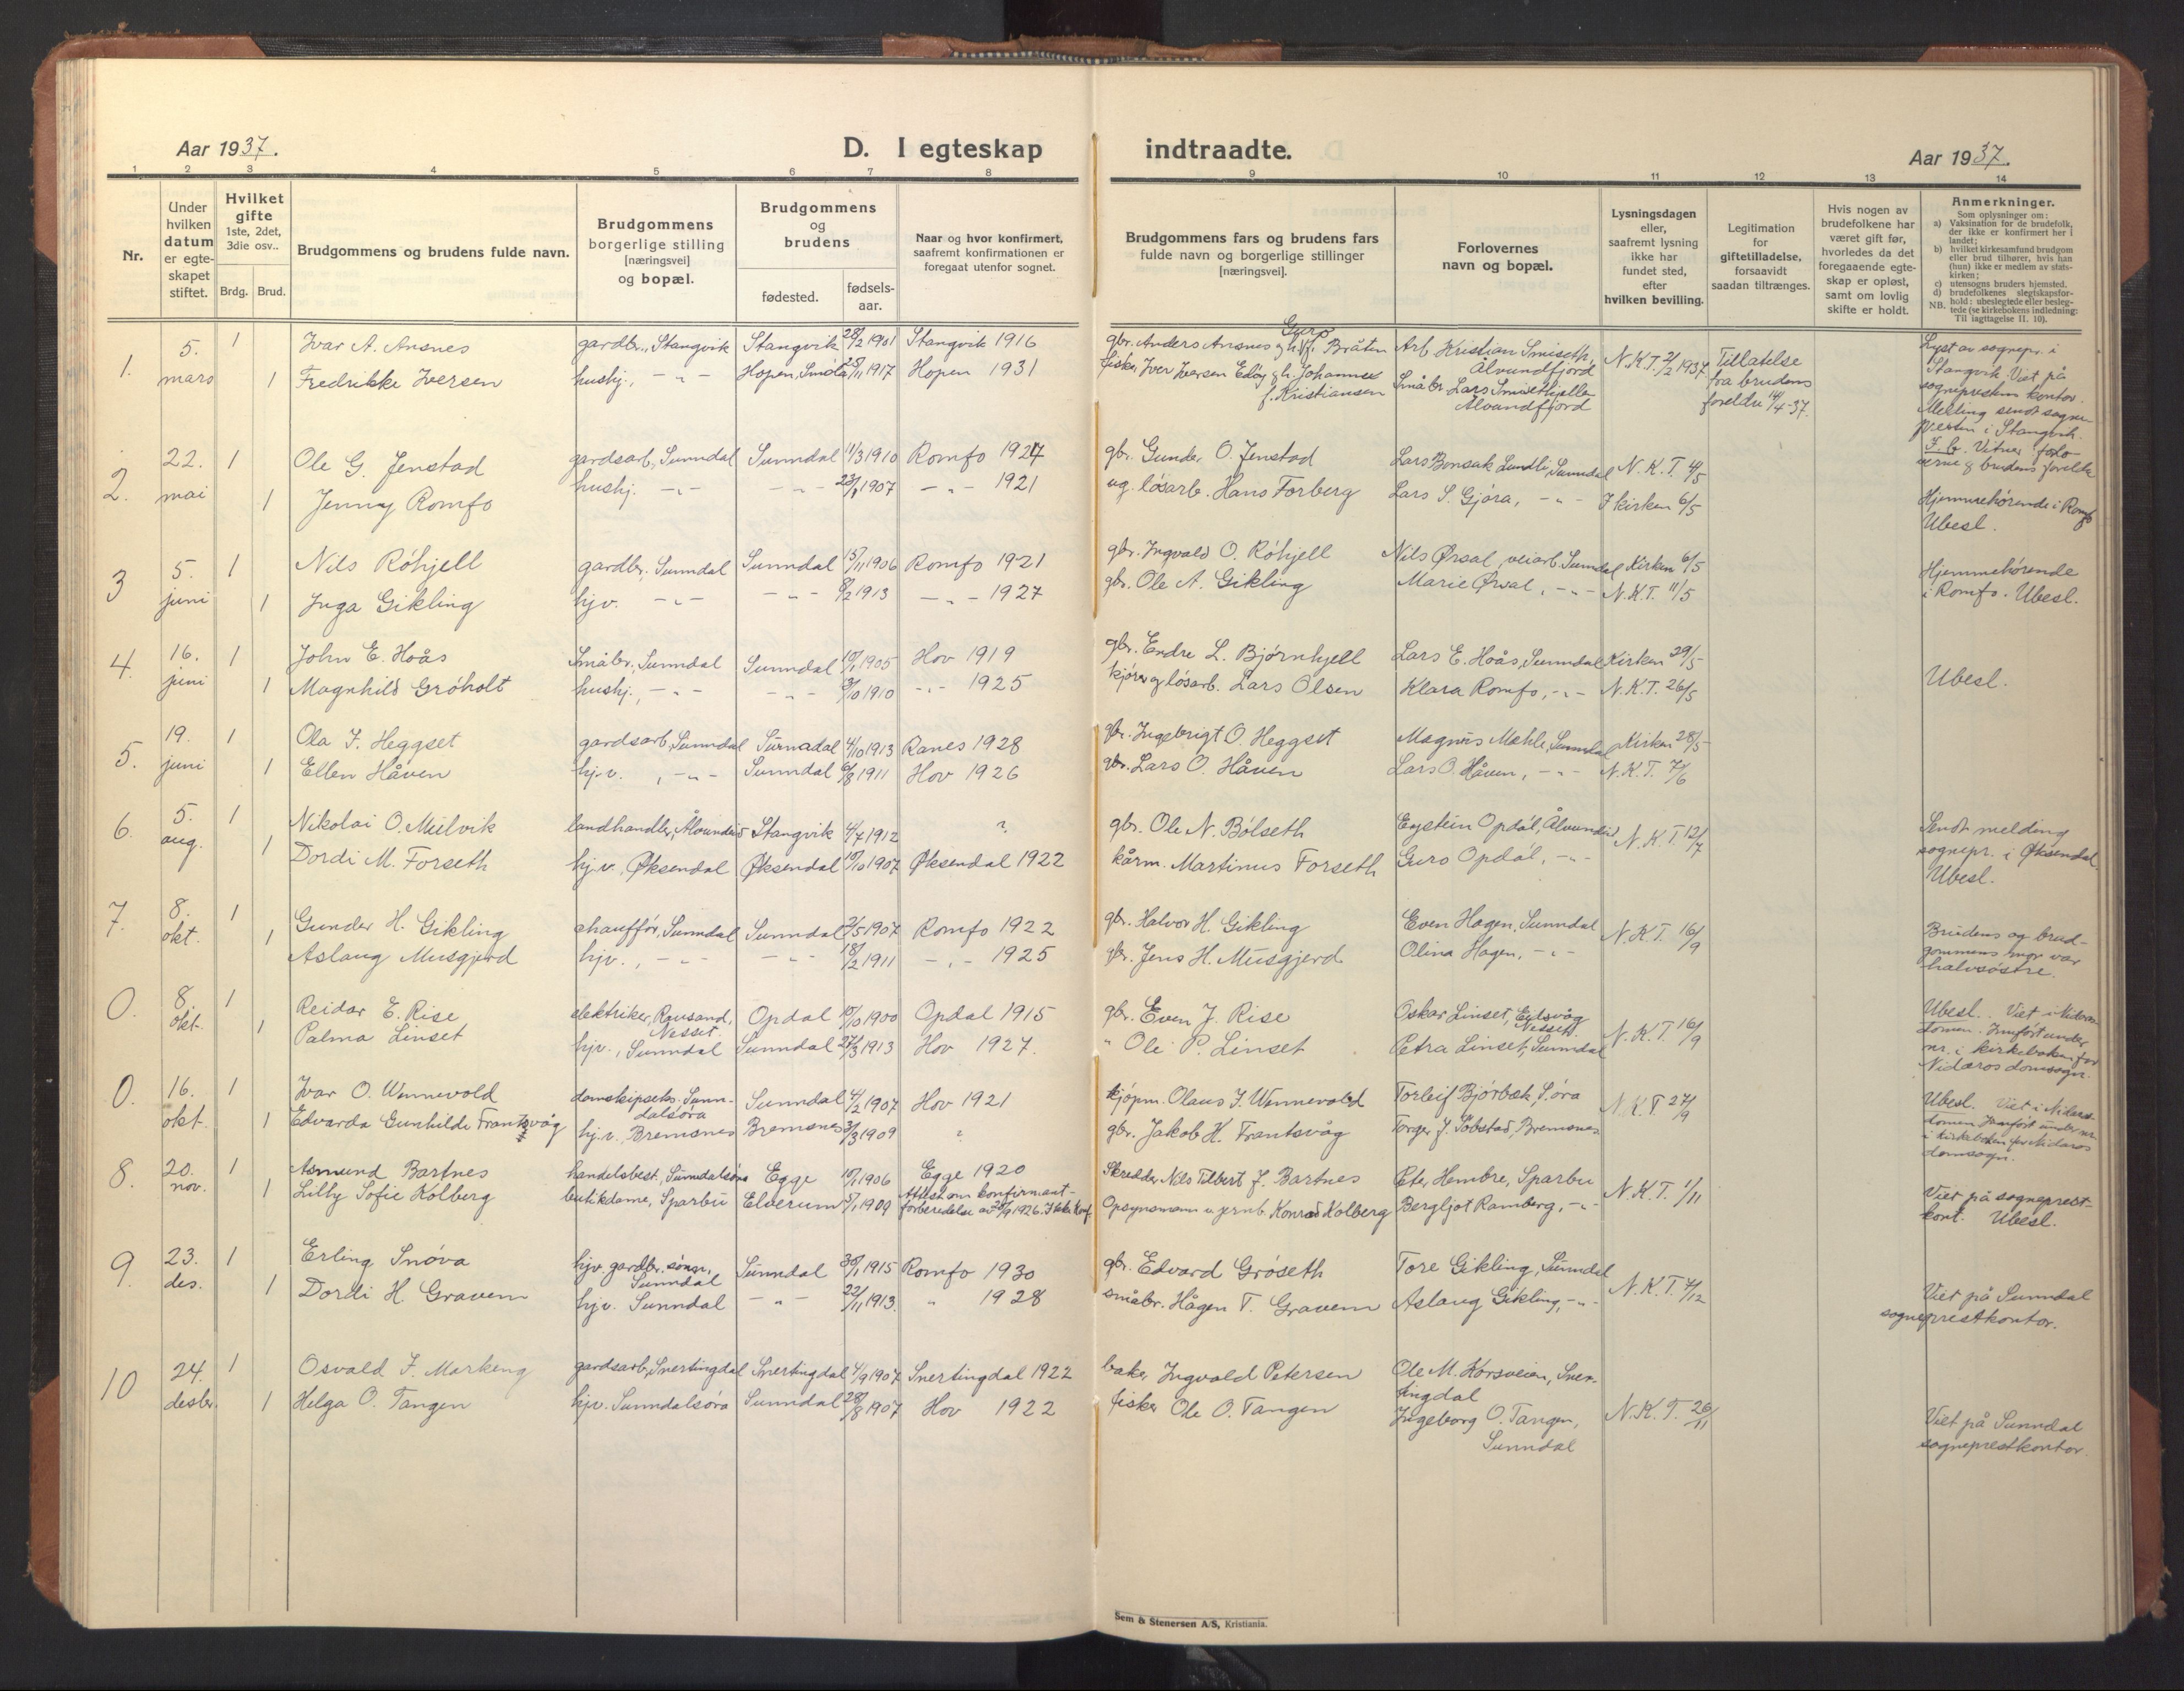 Aar 1937.
D. I egteskap indtraadte.
Aar 1937.
1 2 3 4 5 6 7 8 9 10 11 12 13 14
Nr.
Under hvilken datum er egteskapet stiftet.
Hvilket gifte 1ste, 2det, 3die osv..
Brdg. Brud.
Brudgommens og brudens fulde navn.
Brudgommens borgerlige stilling [næringsvei] og bopæl.
Brudgommens og brudens
fødested. fødsels-aar.
Naar og hvor konfirmert, saafremt konfirmationen er foregaat utenfor sognet.
Brudgommens fars og brudens fars fulde navn og borgerlige stillinger [næringsvei].
Forlovernes navn og bopæl.
Lysningsdagen eller, saafremt lysning ikke har fundet sted, efter hvilken bevilling.
Legitimation for giftetilladelse, forsaavidt saadan tiltrænges.
Hvis nogen av brudefolkene har været gift før, hvorledes da det foregaaende egteskap er opløst, samt om lovlig skifte er holdt.
Anmerkninger.
Som oplysninger om:
a) Vaksination for de brudefolk, der ikke er konfirmert her i landet;
b) hvilket kirkesamfund brudgom eller brud tilhører, hvis han (hun) ikke er medlem av statskirken;
c) utensogns bruders hjemsted.
d) brudefolkenes slegtskapsforhold: ubeslegtede eller beslegtede (se kirkebokens indledning: Til iagttagelse II. 10).
NB.
1. 5. mars 1 Ivar A. Ansnes gardbr., Stangvik Stangvik 28/2 1901 Stangvik 1916 gbr. Anders Ansnes og h. f. Guro Bråten Arb. Kristian Smiseth, Ålvundfjord N.K.T. 2/2 1937 Tillatelse fra brudens foreldre 14/4-37.
1 Fredrikke Iversen hushj., -"- Hopen, Smøla 25/11 1917 Hopen 1931 fisker Iver Iversen Edøy og h. Johanna f. Kristiansen Småbr. Lars Smisethjellen Ålvundfjord
Lyst av sognepr. i Stangvik. Viet på sogneprestens kontor. Melding sendt sognepresten i Stangvik.
2. 22. mai 1 Ole G. Jenstad gardsarb., Sunndal Sunndal 11/3 1910 Romfo 1924 gbr. Gunder O. Jenstad Lars Bonsak Lundli, Sunndal N.K.T. 4/5
1 Jenny Romfo hushj. -"- -"- 23/1 1907 -"- 1921 ug. løsarb. Hans Forberg Lars S. Gjøra, -"- I kirken 6/5
Hjemmehørende i Romfo Ubesl.
3 5. juni 1 Nils Røhjell gardbr., Sunndal Sunndal 15/11 1906 Romfo 1921 gbr. Ingvald O. Røhjell Nils Ørsal, veiarb. Sunndal Kirken 6/5
1 Inga Gikling hjv. -"- -"- 8/2 1913 -"- 1927 gbr. Ole A. Gikling Marie Ørsal, -"- N.K.T. 11/5
Hjemmehørende i Romfo. Ubesl.
4. 16. juni 1 John E. Hoås Småbr., Sunndal Sunndal 10/1 1905 Hov 1919 gbr. Endre L. Bjørnhjell Lars E. Hoås, Sunndal Kirken 29/5
1 Magnhild Grøholt hushj., -"- -"- 3/10 1910 -"- 1925 kjører og løsarb. Lars Olsen Klara Romfo, -"- N.K.T. 26/5
Ubesl.
5. 19. juni 1 Ola I. Heggset gardsarb., Sunndal Surnadal 4/10 1913 Ranes 1928 gbr. Ingebrigt O. Heggset Magnus Mæhle, Sunndal Kirken 28/5
1 Ellen Håven hj.v. , -"- Sunndal 6/8 1911 Hov 1926 gbr. Lars O. Håven Lars O. Håven, -"- N.K.T. 7/6
6. 5. aug. 1 Nikolai O. Mulvik landhandler, Ålvundeid Stangvik 4/7 1912 ? gbr. Ole N. Bølseth Eystein Opdøl, Ålvundeid N.K.T 12/7
1 Dordi M. Forseth hj.v., Øksendal Øksendal 10/10 1907 Øksendal 1922 kårm. Martinus Forseth Guro Opdøl, -"-
Sendt melding sognepr. i Øksendal. Ubesl.
7. 8. okt. 1 Gunder H. Gikling chauffør, Sunndal Sunndal 2/5 1907 Romfo 1922 gbr. Halvor H. Gikling Even Hagen, Sunndal N.K.T. 16/9
1 Aslaug Musgjerd hjv., -"- -"- 18/2 1911 -"- 1925 gbr. Jens H. Musgjerd Olina Hagen, -"-
Brudens og brudgommens mor var halvsøstre.
0. 8. okt. 1 Reidar E. Rise elektriker, Rausand, Nesset Opdal 15/10 1900 Opdal 1915 gbr. Even J. Rise Oskar Linset, Eidsvåg Nesset N.K.T. 16/9
1 Palma Linset hjv., Sunndal Sunndal 27/3 1913 Hov 1927. " Ole P. Linset Petra Linset, Sunndal
Ubesl. Viet i Nidarosdomen. Innført under nr. i kirkeboken for Nidaros domsogn.
0. 16. okt. 1 Ivar O. Wennevold damskipseks. Sunndalsøra Sunndal 4/2 1907 Hov 1921 kjøpm. Olaus I. Wennevold Torleif Bjørbæk, S.øra N.K.T 27/9
1 Edvarda Gunhilde Frantsvåg hj.v. Bremsnes Bremsnes 3/3 1909 ? gbr. Jakob H. Frantsvåg Torger J. Søbstad, Bremsnes
Ubesl. Viet i Nidarosdomen. Innført under nr. i kirkeboken for Nidaros domsogn.
8. 20. nov. 1 Asmund Bartnes handelsbest., Sunndalsøra Egge 10/1 1906 Egge 1920 Skredder Nils Tilbert J. Bartnes Peter Hembre, Sparbu N.K.T. 1/11
1 Lilly Sofie Kolberg butikdame, Sparbu Elverum 5/1 1909 Attest om konfirmantforberedelse av 28/9 1926. Ikke konf. Opsynsmann v. jernb. Konrad Kolberg Bergljot Ramberg, -"-
Viet på sogneprestkont. Ubesl.
9. 23. des. 1 Erling Snøva hjv. gardbr. sønn, Sunndal Sunndal 30/1 1915 Romfo 1930 gbr. Edvard Grøseth Tore Gikling, Sunndal N.K.T. 4/12
1 Dordi H. Gravem hjv. Sunndal -"- 22/11 1913. " 1928 småbr. Hågen T. Gravem Aslaug Gikling, -"-
Viet på Sunndal sogneprestkontor.
10 24. desbr. 1 Osvald I. Markeng gardsarb., Snertingdal Snertingdal 4/9 1907 Snertingdal 1922 baker Ingvald Petersen Ole M. Korsveien, Snertingdal N.K.T. 26/11
1 Helga O. Tangen hjv. Sunndalsøra Sunndal 28/8 1907 Hov 1922 fisker Ole O. Tangen Ingeborg O. Tangen, Sunndal
Viet på Sunndal sogneprestkontor.
Sem & Stenersen A/S, Kristiania.